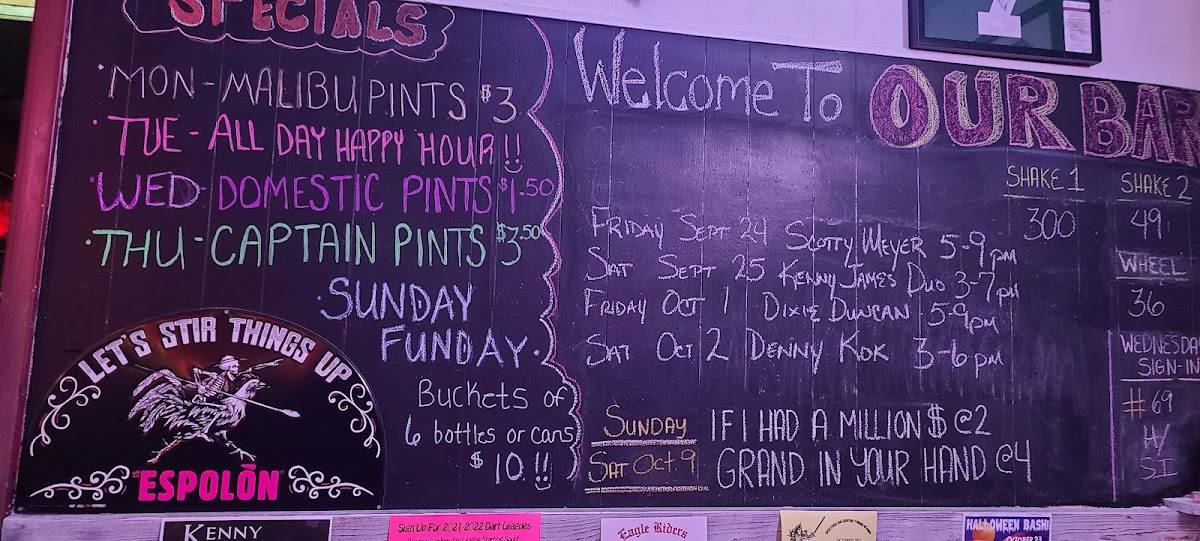 SPECIALS
· MON - MALIBU PINTS $3
· TUE - ALL DAY HAPPY HOUR!!
· WED - DOMESTIC PINTS $1.50
· THU - CAPTAIN PINTS $3.50
· SUNDAY
FUNDAY ·
Buckets of
6 bottles or cans
$10!!
LET'S STIR THINGS UP
ESPOLÒN
Welcome To OUR BAR
FRIDAY SEPT 24 SCOTTY MEYER 5-9pm
SAT SEPT 25 KENNY JAMES DUO 3-7pm
FRIDAY OCT 1 DIXIE DUNCAN 5-9pm
SAT OCT 2 DENNY KOK 3-6pm
SUNDAY IF I HAD A MILLION $ @2
SAT OCT. 9 GRAND IN YOUR HAND @4
SHAKE 1
300
SHAKE 2
49
WHEEL
36
WEDNESDA
SIGN-IN
#69
H/
SI
KENNY
Sign Up For 2021-2022 Dart Leagues
Eagle Riders
HALLOWEEN BASH!
OCTOBER 23